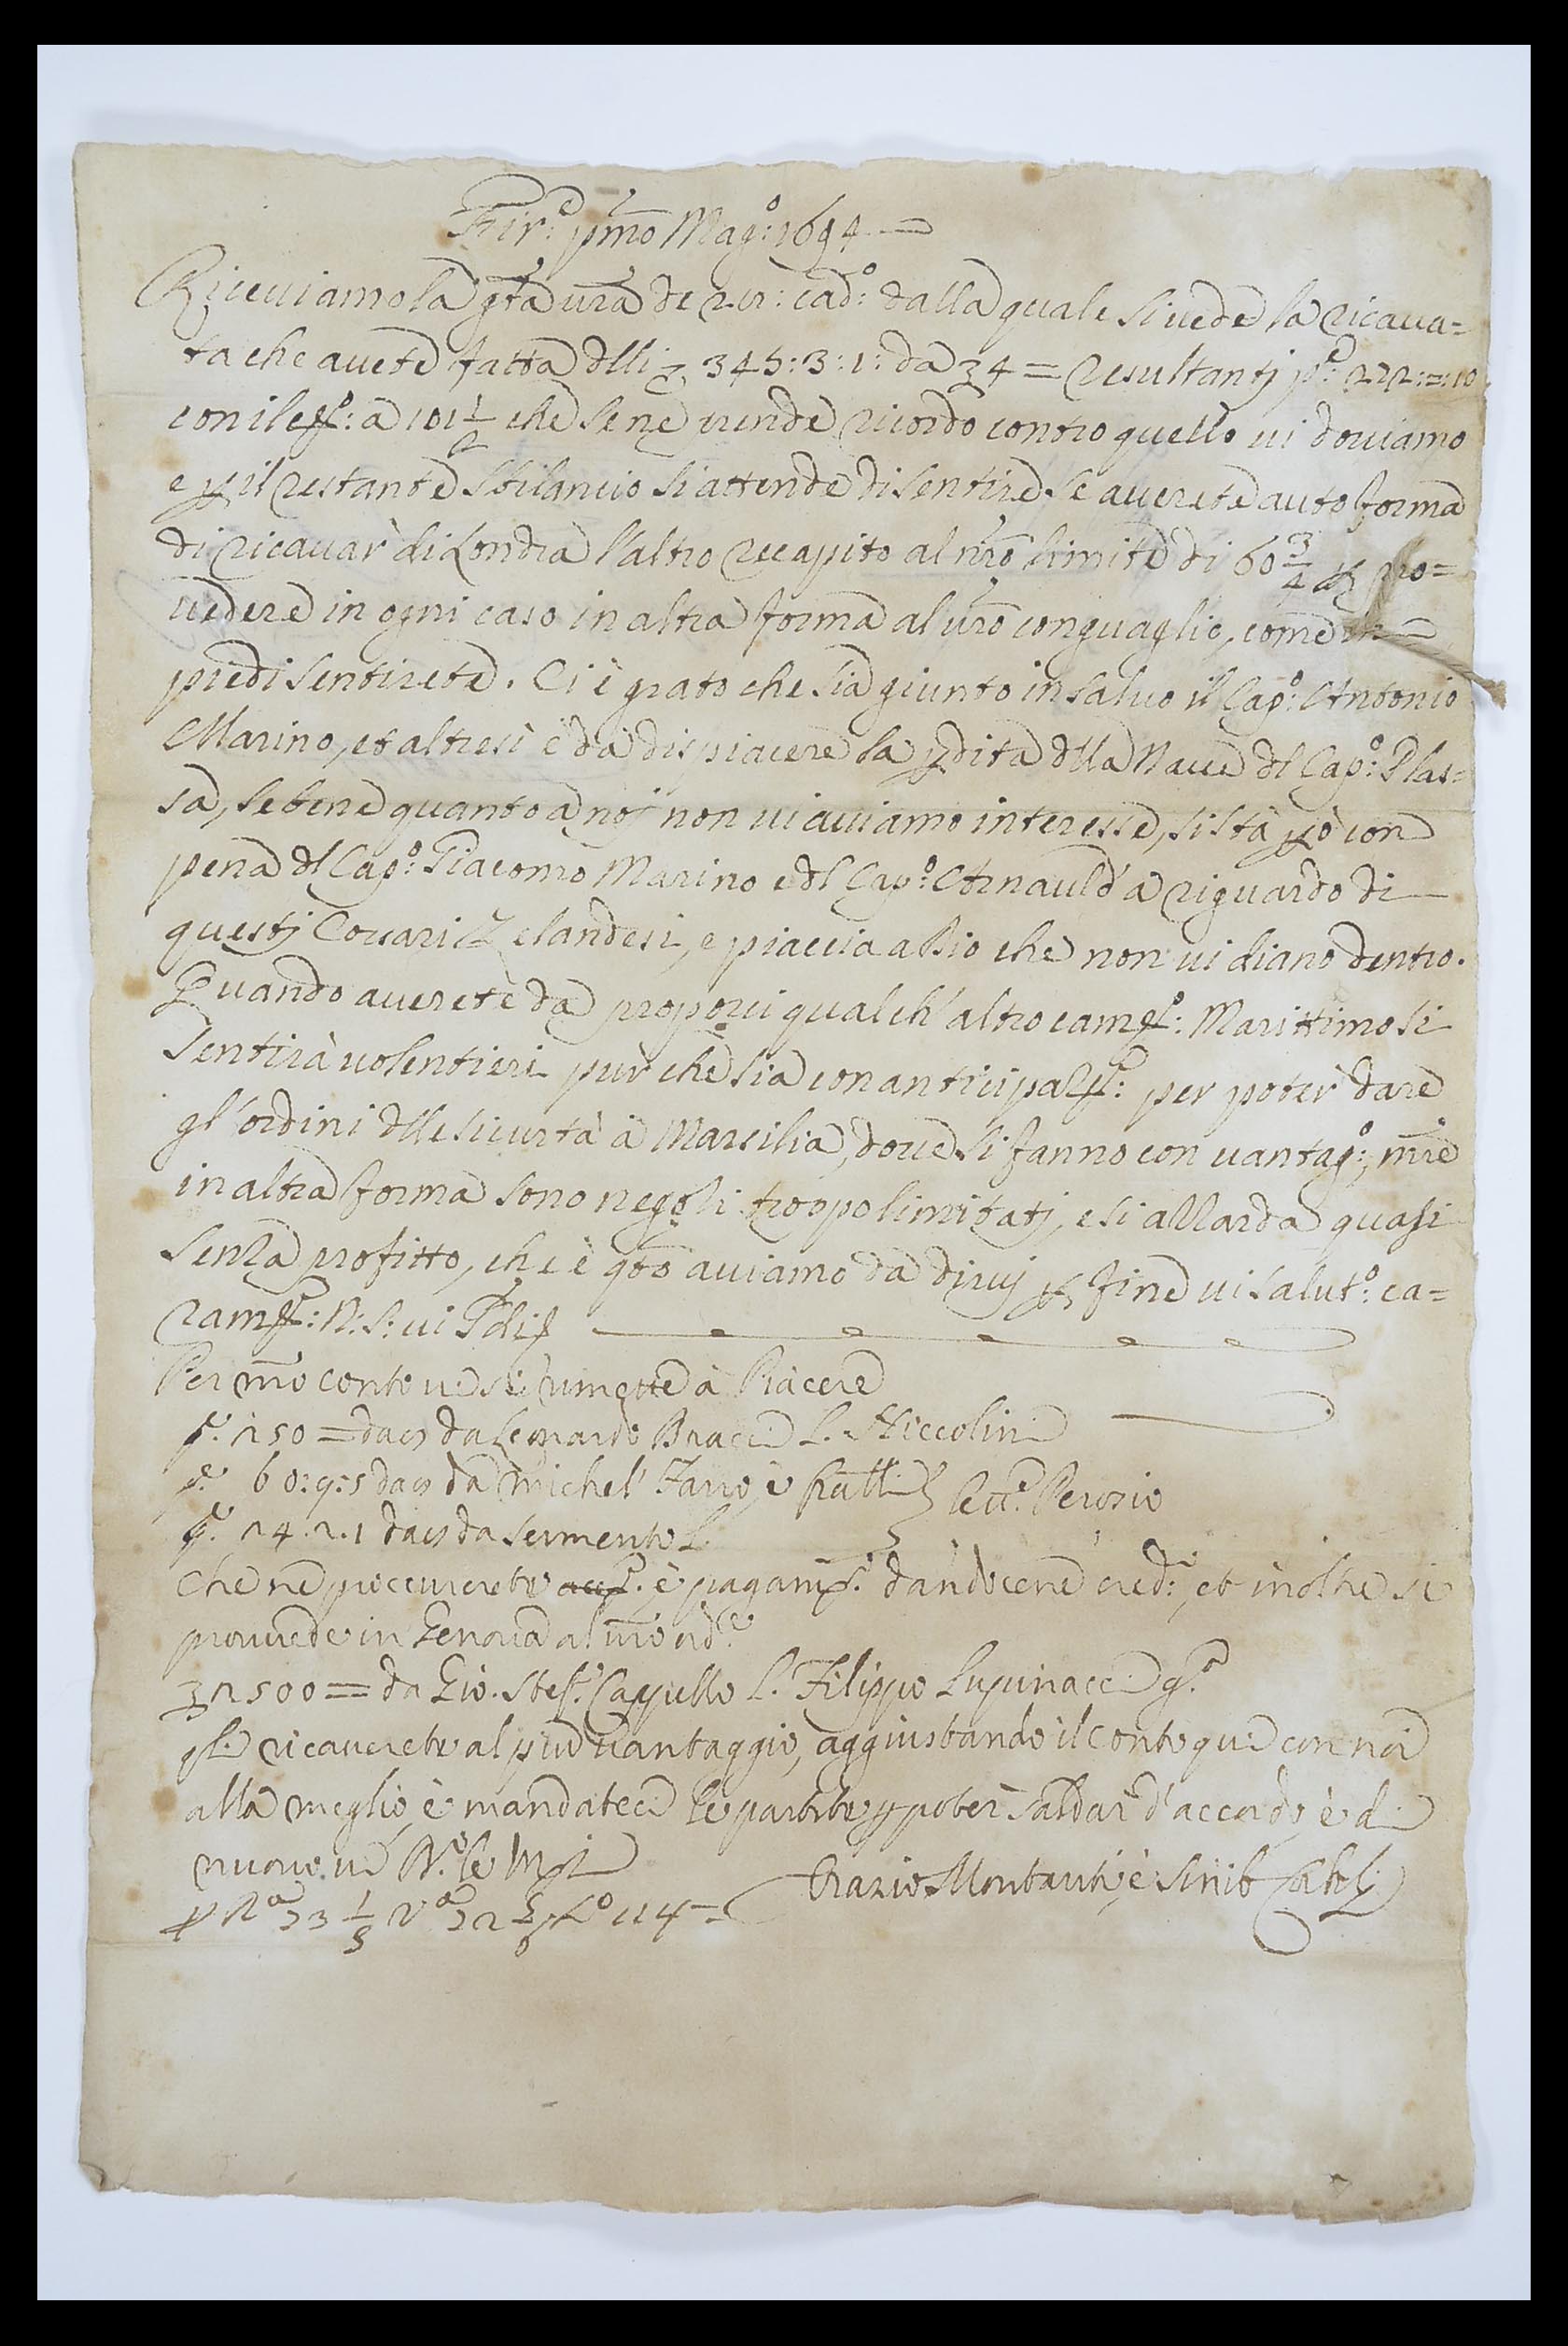 Fir.e pmo Mag.o: 1694 =
Riceviamo la grta vra de 21: cad.o: dalla quale si vede la ricava=
ta che avete fatta dlli 345: 3: 1: da 34 = resultanti p.e: 222: =: 10
con il a 101 1/2 che se ne prende ricordo contro quello vi doviamo
e p il restante sbilancio si attende di sentire se averete auto forma
di ricavar di Londra l'altro recapito al nro limite di 60 3/4 p pro=
vedere in ogni caso in altra forma al vro conguaglio, come in=
piedi sentirete. Ci è grato che sia giunto in salvo il Cap.o: Antonio
Marino, et altresì è da dispiacere la pdita dlla Nave dl Cap.o: Plas=
sa, se bene quanto a noj non vi aviamo interesse, si stà pò con
pena dl Cap.o: Giacomo Marino e dl Cap.o: Arnauld a riguardo di
questj Corsari Zelandesi, e piaccia a Dio che non vi diano dentro.
Quando averete da proporci qualch' altro Marittimo si
sentirà volentieri pur che sia con per poter dare
gl'ordini dlle sicurtà à Marsilia, dove si fanno con vantag.o:, mre
in altra forma sono negozi troppo limitatj, e si azzarda quasi
senza profitto, che è qto aviamo da dirvj p fine vi salut.o: ca=
ram.: N: S: vi
Per nro conto vi si rimette à Piacere
150 = da Leonardo Bracci L. Niccolini
60: 9: 5 da Michel' e fratlli
14. 2. 1 da Sermente L.
che ne procurerete è pagam. dandocene cred.: et inoltre si
provvede in Genova al vro
2500 = da Gio. Stef. Cappello L. Filippo Lupinacci
ricaverete al più vantaggio, aggiustando il conto qui con noi
alla meglio è mandateci le partite p poter saldar d'accordo, è di
nuovo vi
Orazio Montauti, è Sinib